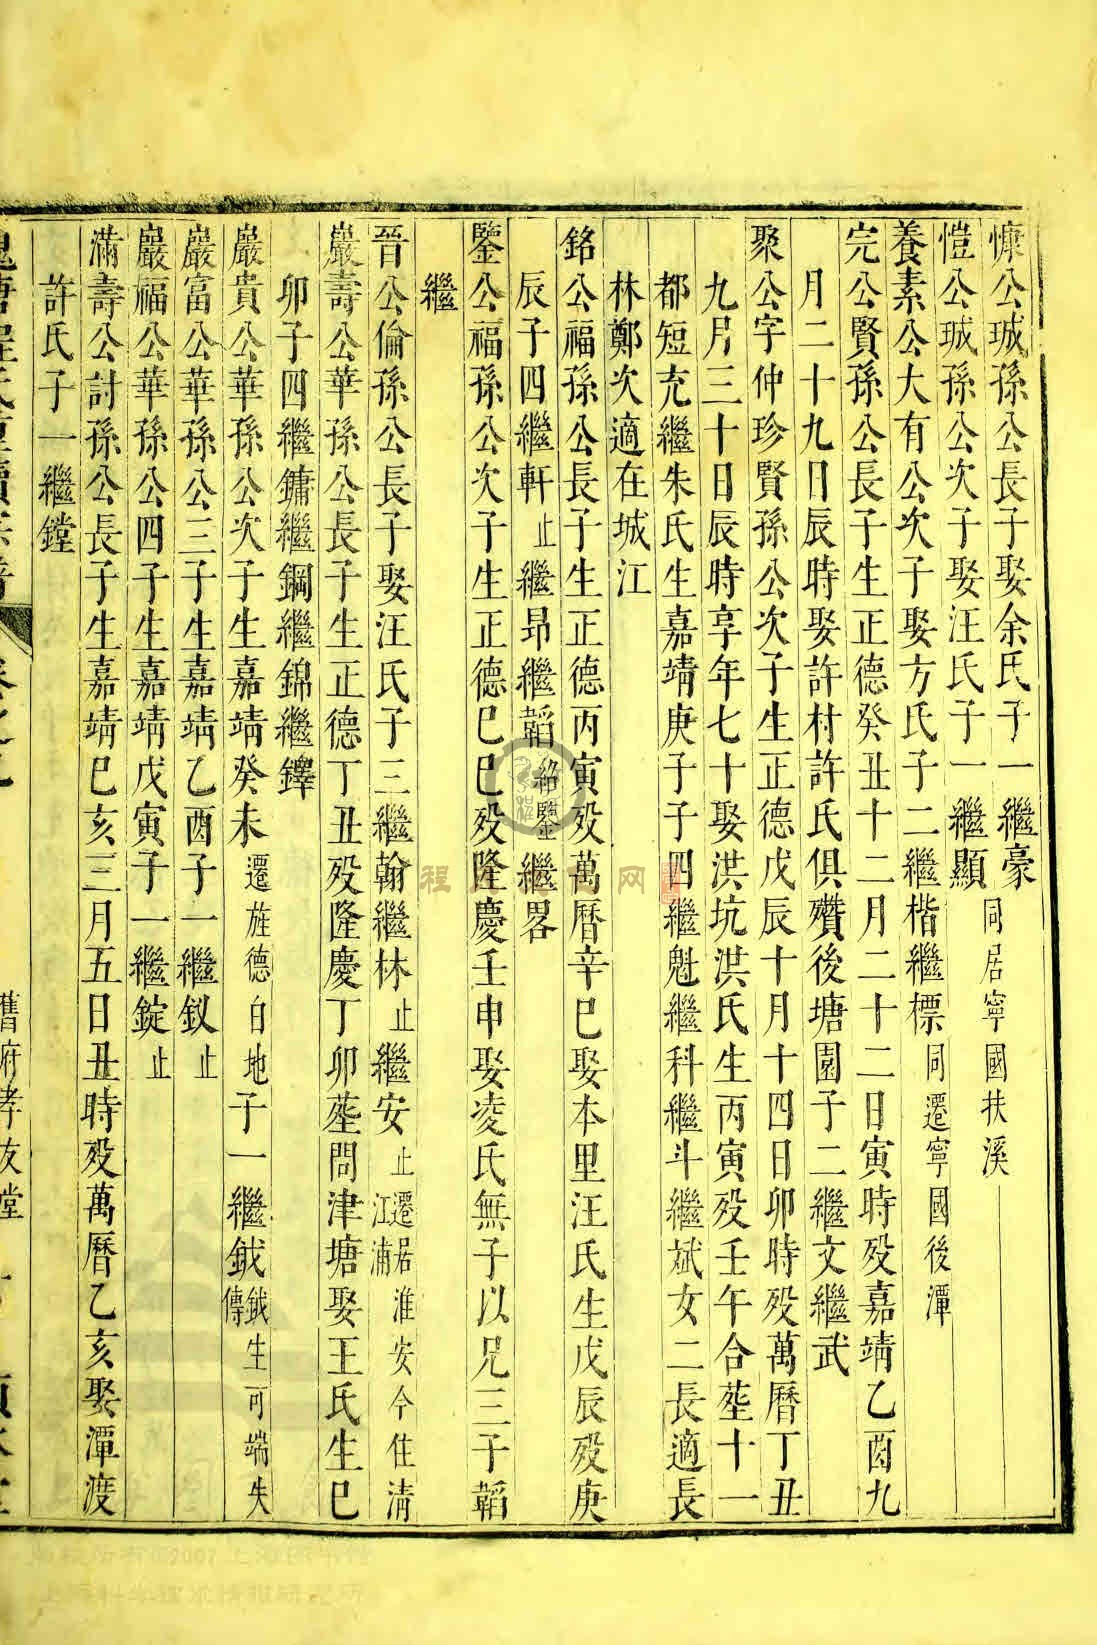 慷公珹孫公長子娶余氏子一繼豪
愷公珹孫公次子娶汪氏子一繼顯同居寧國扶溪
養素公大有公次子娶方氏子二繼楷繼標同遷寧國後潭
完公賢孫公長子生正德癸丑十二月二十二日寅時殁嘉靖乙酉九
月二十九日辰時娶許村許氏俱殯後塘園子二繼文繼武
聚公字仲珍賢孫公次子生正德戊辰十月十四日卯時殁萬曆丁丑
九月三十日辰時享年七十娶洪坑洪氏生丙寅殁壬午合塟十一
都短充繼朱氏生嘉靖庚子子四繼魁繼科繼斗繼斌女二長適長
林鄭次適在城江
銘公福孫公長子生正德丙寅殁萬曆辛巳娶本里汪氏生戊辰殁庚
辰子四繼軒止繼昻繼韜紹鑒繼畧
鑒公福孫公次子生正德巳巳殁隆慶壬申娶凌氏無子以兄三子韜
繼
晉公倫孫公長子娶汪氏子三繼翰繼林止繼安止遷居淮安今住清江浦
巖壽公華孫公長子生正德丁丑殁隆慶丁卯塟問津塘娶王氏生巳
卯子四繼鏞繼鋼繼錦繼鐸
巖貴公華孫公次子生嘉靖癸未遷旌德白地子一繼鉞鉞生可端失傳
巖富公華孫公三子生嘉靖乙酉子一繼釵止
巖福公華孫公四子生嘉靖戊寅子一繼錠止
滿壽公討孫公長子生嘉靖巳亥三月五日丑時殁萬曆乙亥娶潭渡
許氏子一繼鏜
舊府孝友堂